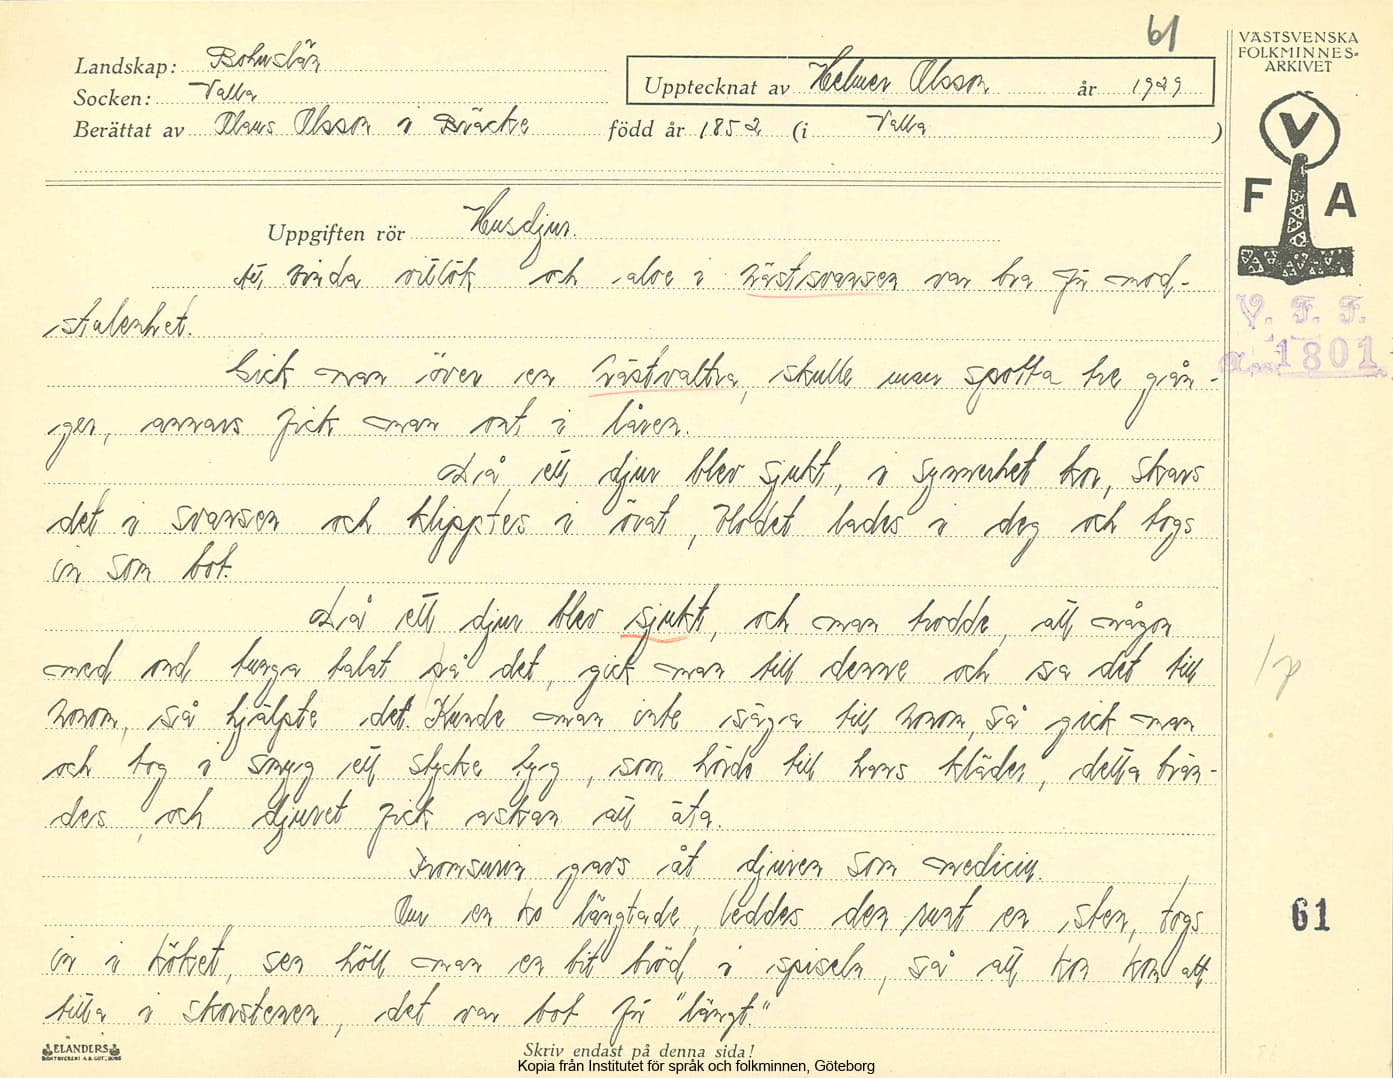 61
VÄSTSVENSKA
FOLKMINNES-
ARKIVET
Landskap: Bohuslän
Upptecknat av Helmer Olsson år 1929
Socken: Valla
Berättat av Olaus Olsson i Bräcke född år 1852 (i Valla )
V
F A
Uppgiften rör Husdjur.
Att binda vitlök och aloe i hästsvansen var bra för mod-
stulenhet.
Gick man över en hästvältra, skulle man spotta tre gån-
ger, annars fick man ont i låren.
Då ett djur blev sjukt, i synnerhet kor, skars
det i svansen och klipptes i örat, blodet lades i deg och togs
in som bot.
Då ett djur blev sjukt, och man trodde, att någon
med ond tunga talat på det, gick man till denne och sa det till
honom, så hjälpte det. Kunde man inte säga till honom, så gick man
och tog i smyg ett stycke tyg, som hörde till hans kläder, detta brän-
des, och djuret fick askan att äta.
Fromsurin gavs åt djuren som medicin.
Om en ko längtade, leddes den runt en sten, togs
in i köket, sen höll man en bit bröd i spiseln, så att kon kom att
titta i skorstenen, det var bot för "längt."
V. F. F.
1801
61
ELANDERS
Skriv endast på denna sida!
Kopia från Institutet för språk och folkminnen, Göteborg